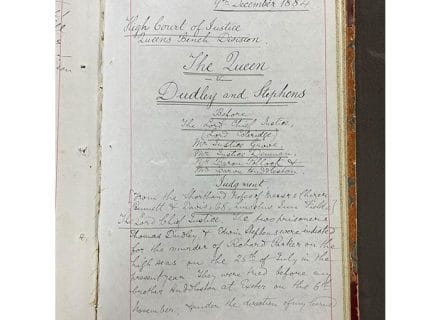 9th December 1884
High Court of Justice
Queens Bench Division
The Queen
v
Dudley and Stephens
Before
The Lord Chief Justice
(Lord Coleridge)
Mr Justice Grove
Mr Justice Denman
Mr Baron Pollock &
Mr Baron Huddleston
Judgment
[From the Shorthand Notes of Messrs
The Lord Chief Justice The two prisoners
Thomas Dudley & Edwin Stephens were indicted
for the murder of Richard Parker on the
high seas on the 25th of July in the
present year They were tried before my
brother Huddleston at Exeter on the 6th
November, under the direction of my learned